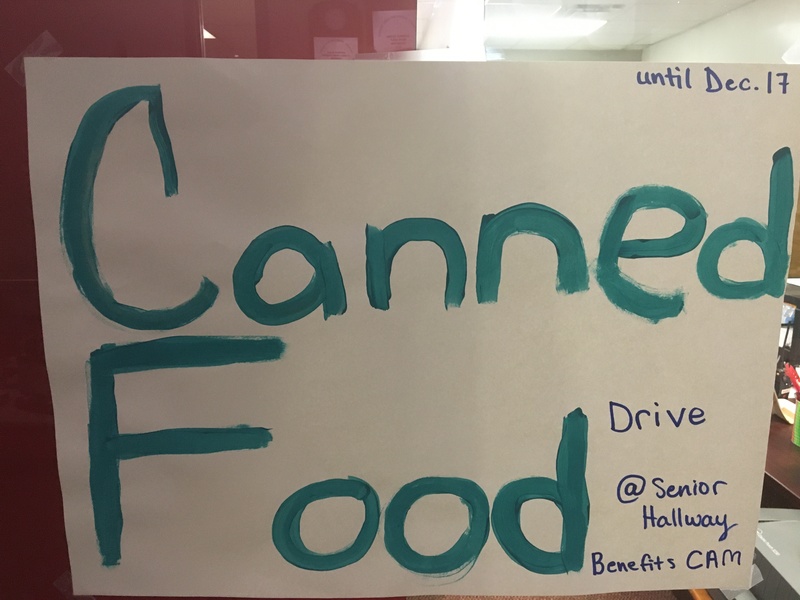 until Dec. 17
Canned
Food
Drive
@ Senior
Hallway
Benefits CAM